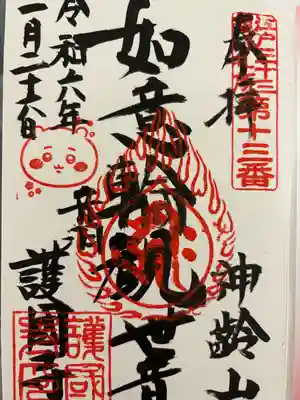 奉拝
江戸三十三第十三番
神齢山
如意輪観世音
音羽
護国寺
護国寺
令和六年
一月二十六日